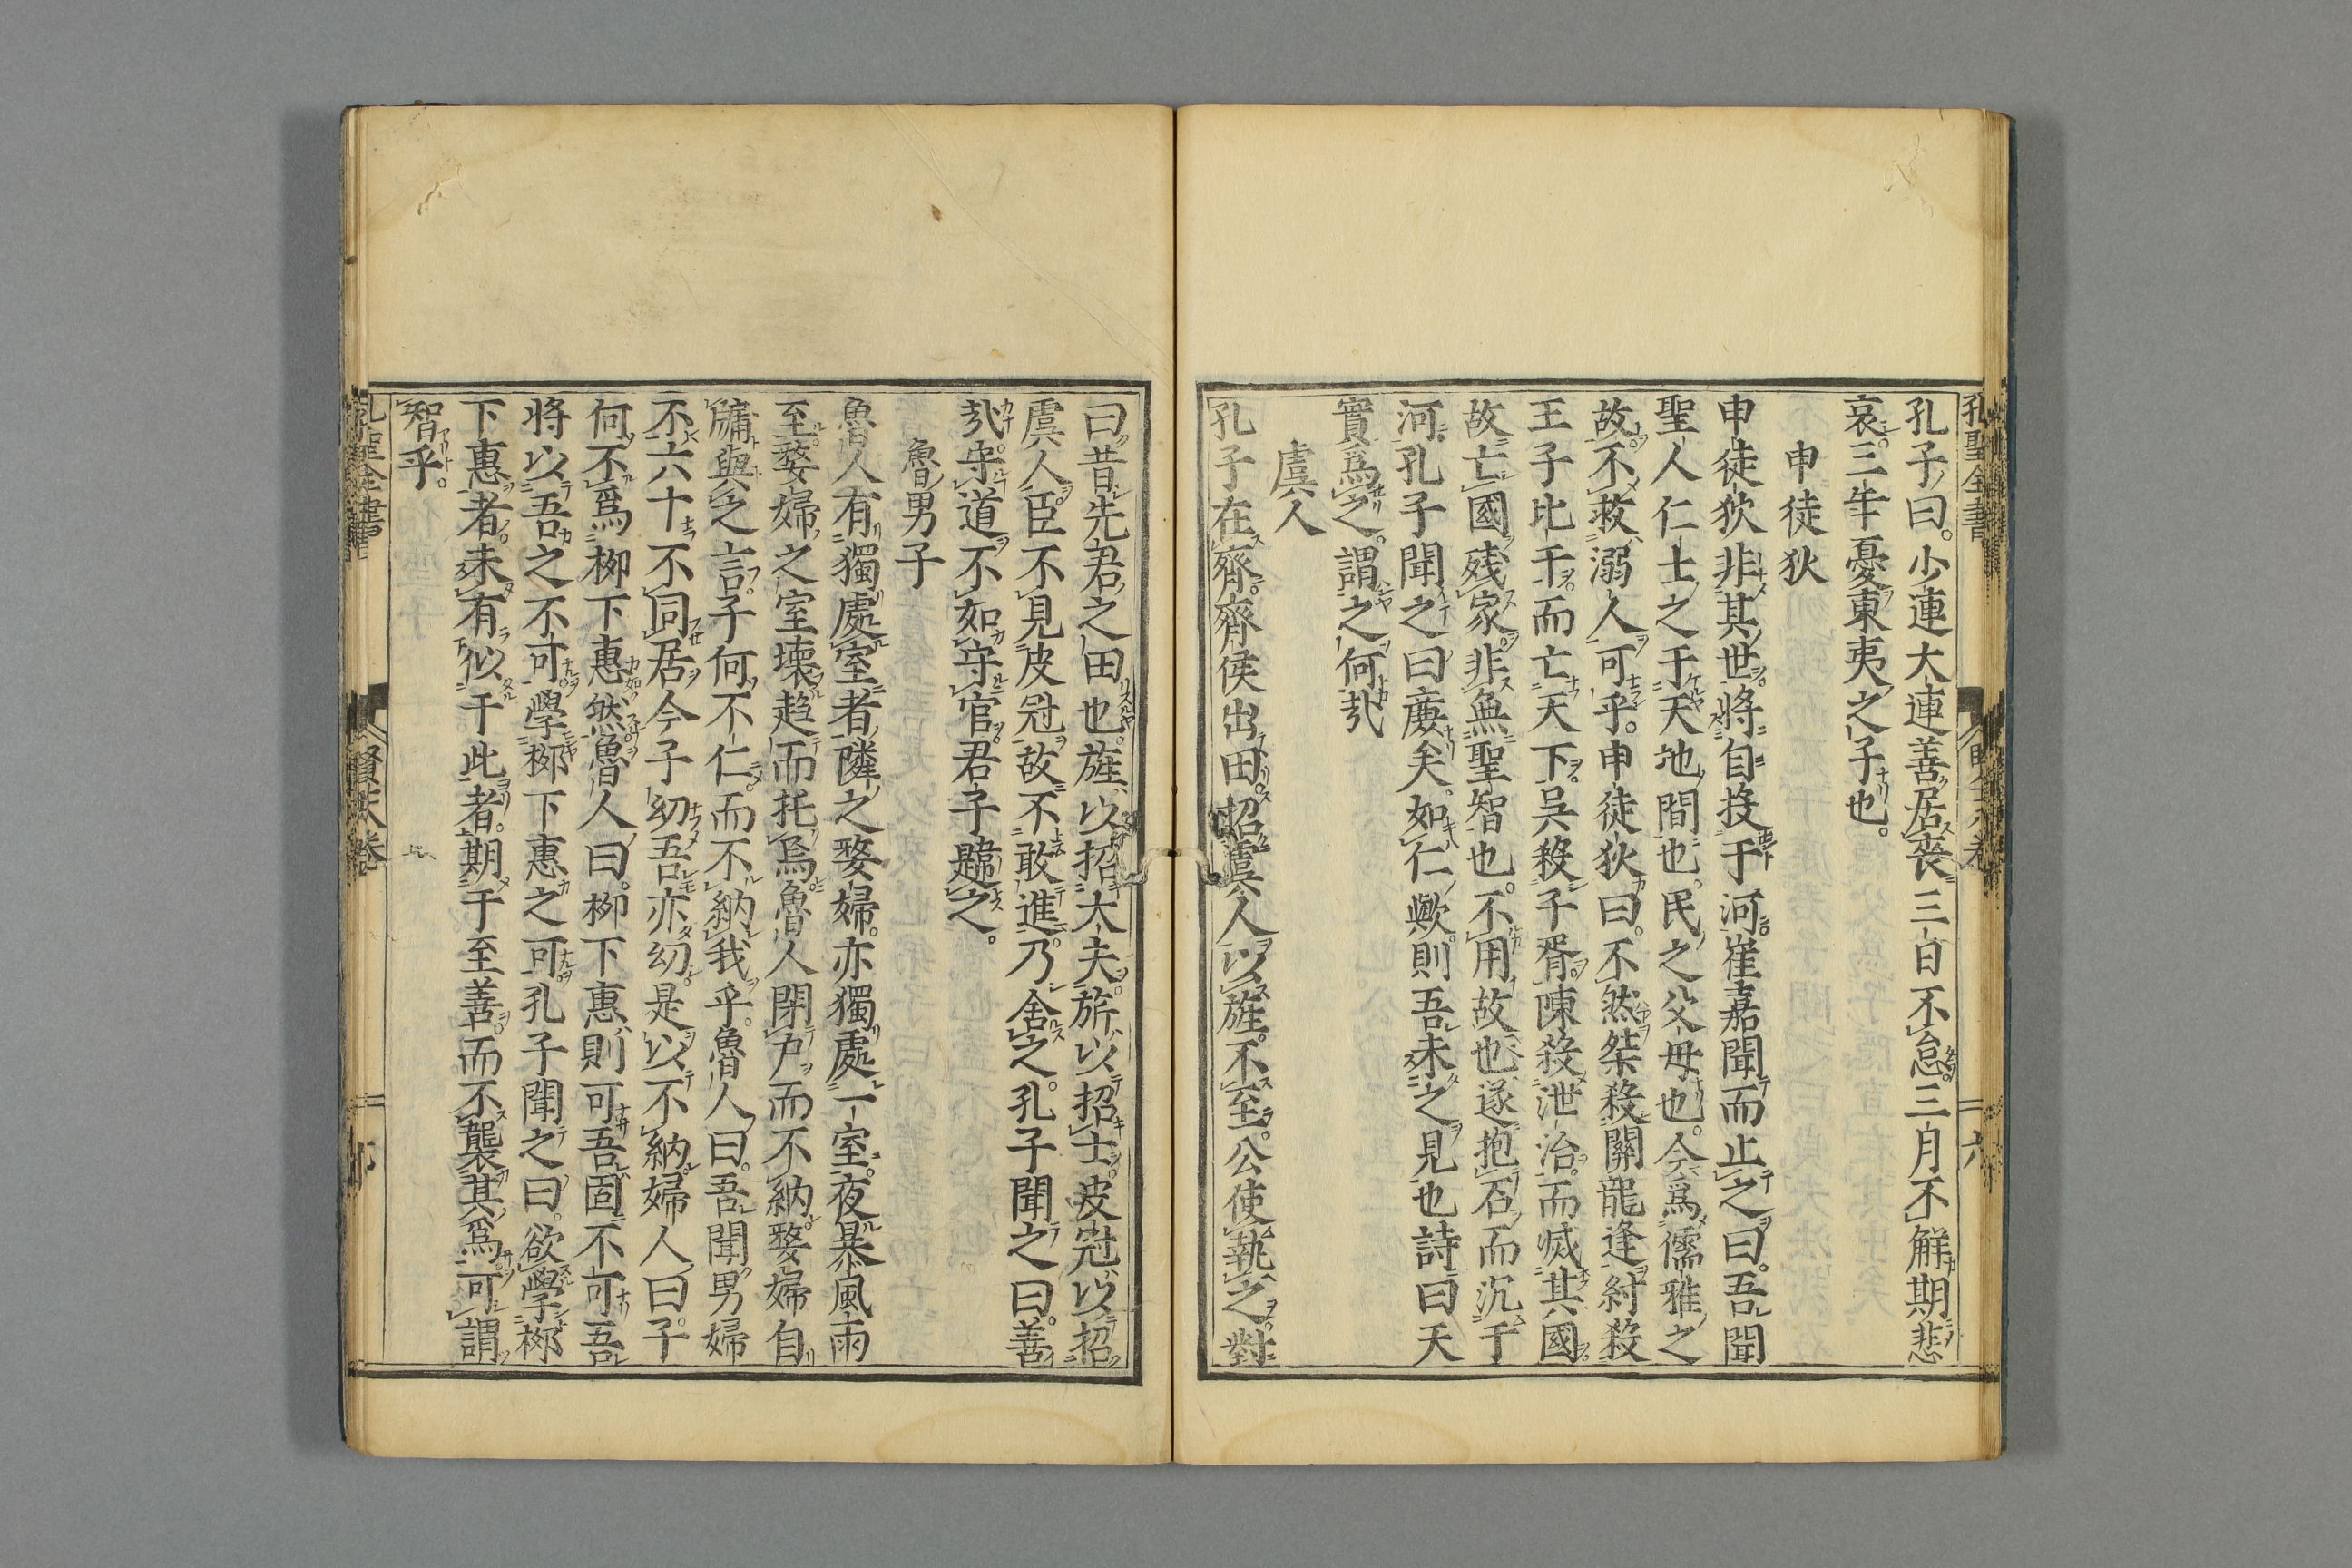 孔子曰。少連大連善居喪三日不怠。三月不解期悲
哀。三年憂東夷之子也。
申徒狄
申徒狄非其世將自投于河。崔嘉聞而止之曰。吾聞
聖人仁士之于天地間也。民之父母也。今爲儒雅之
故不救溺人可乎。申徒狄曰。不然桀殺關龍逢紂殺
王子比干。而亡天下。吳殺子胥。陳殺泄冶。而滅其國
故亡國殘家。非無聖智也。不用故也遂抱石而沉于
河。孔子聞之曰廉矣。如仁歟。則吾未之見也詩曰天
實爲之。謂之何㢤
虞人
孔子在齊。齊侯出田。招虞人以旌。不至。公使執之。對
曰昔先君之田也。旌以招大夫。旂以招士。皮冠以招
虞人。臣不見皮冠故不敢進。乃舍之。孔子聞之曰。善
㢤。守道不如守官。君子韙之。
魯男子
魯人有獨處室者隣之嫠婦。亦獨處一室。夜暴風雨
至。嫠婦之室壞趋而托焉。魯人閉户而不納嫠婦自
牗與之言。子何不仁。而不納我乎。魯人曰。吾聞男婦
不六十不同居今子㓜吾亦㓜。是以不納婦人曰。子
何不爲栁下惠然。魯人曰。栁下惠則可吾固不可吾
將以吾之不可。學栁下惠之可。孔子聞之曰。欲學栁
下惠者。未有似于此者。期于至善。而不襲其爲。可謂
智乎。
孔聖全書
孔聖全書
六